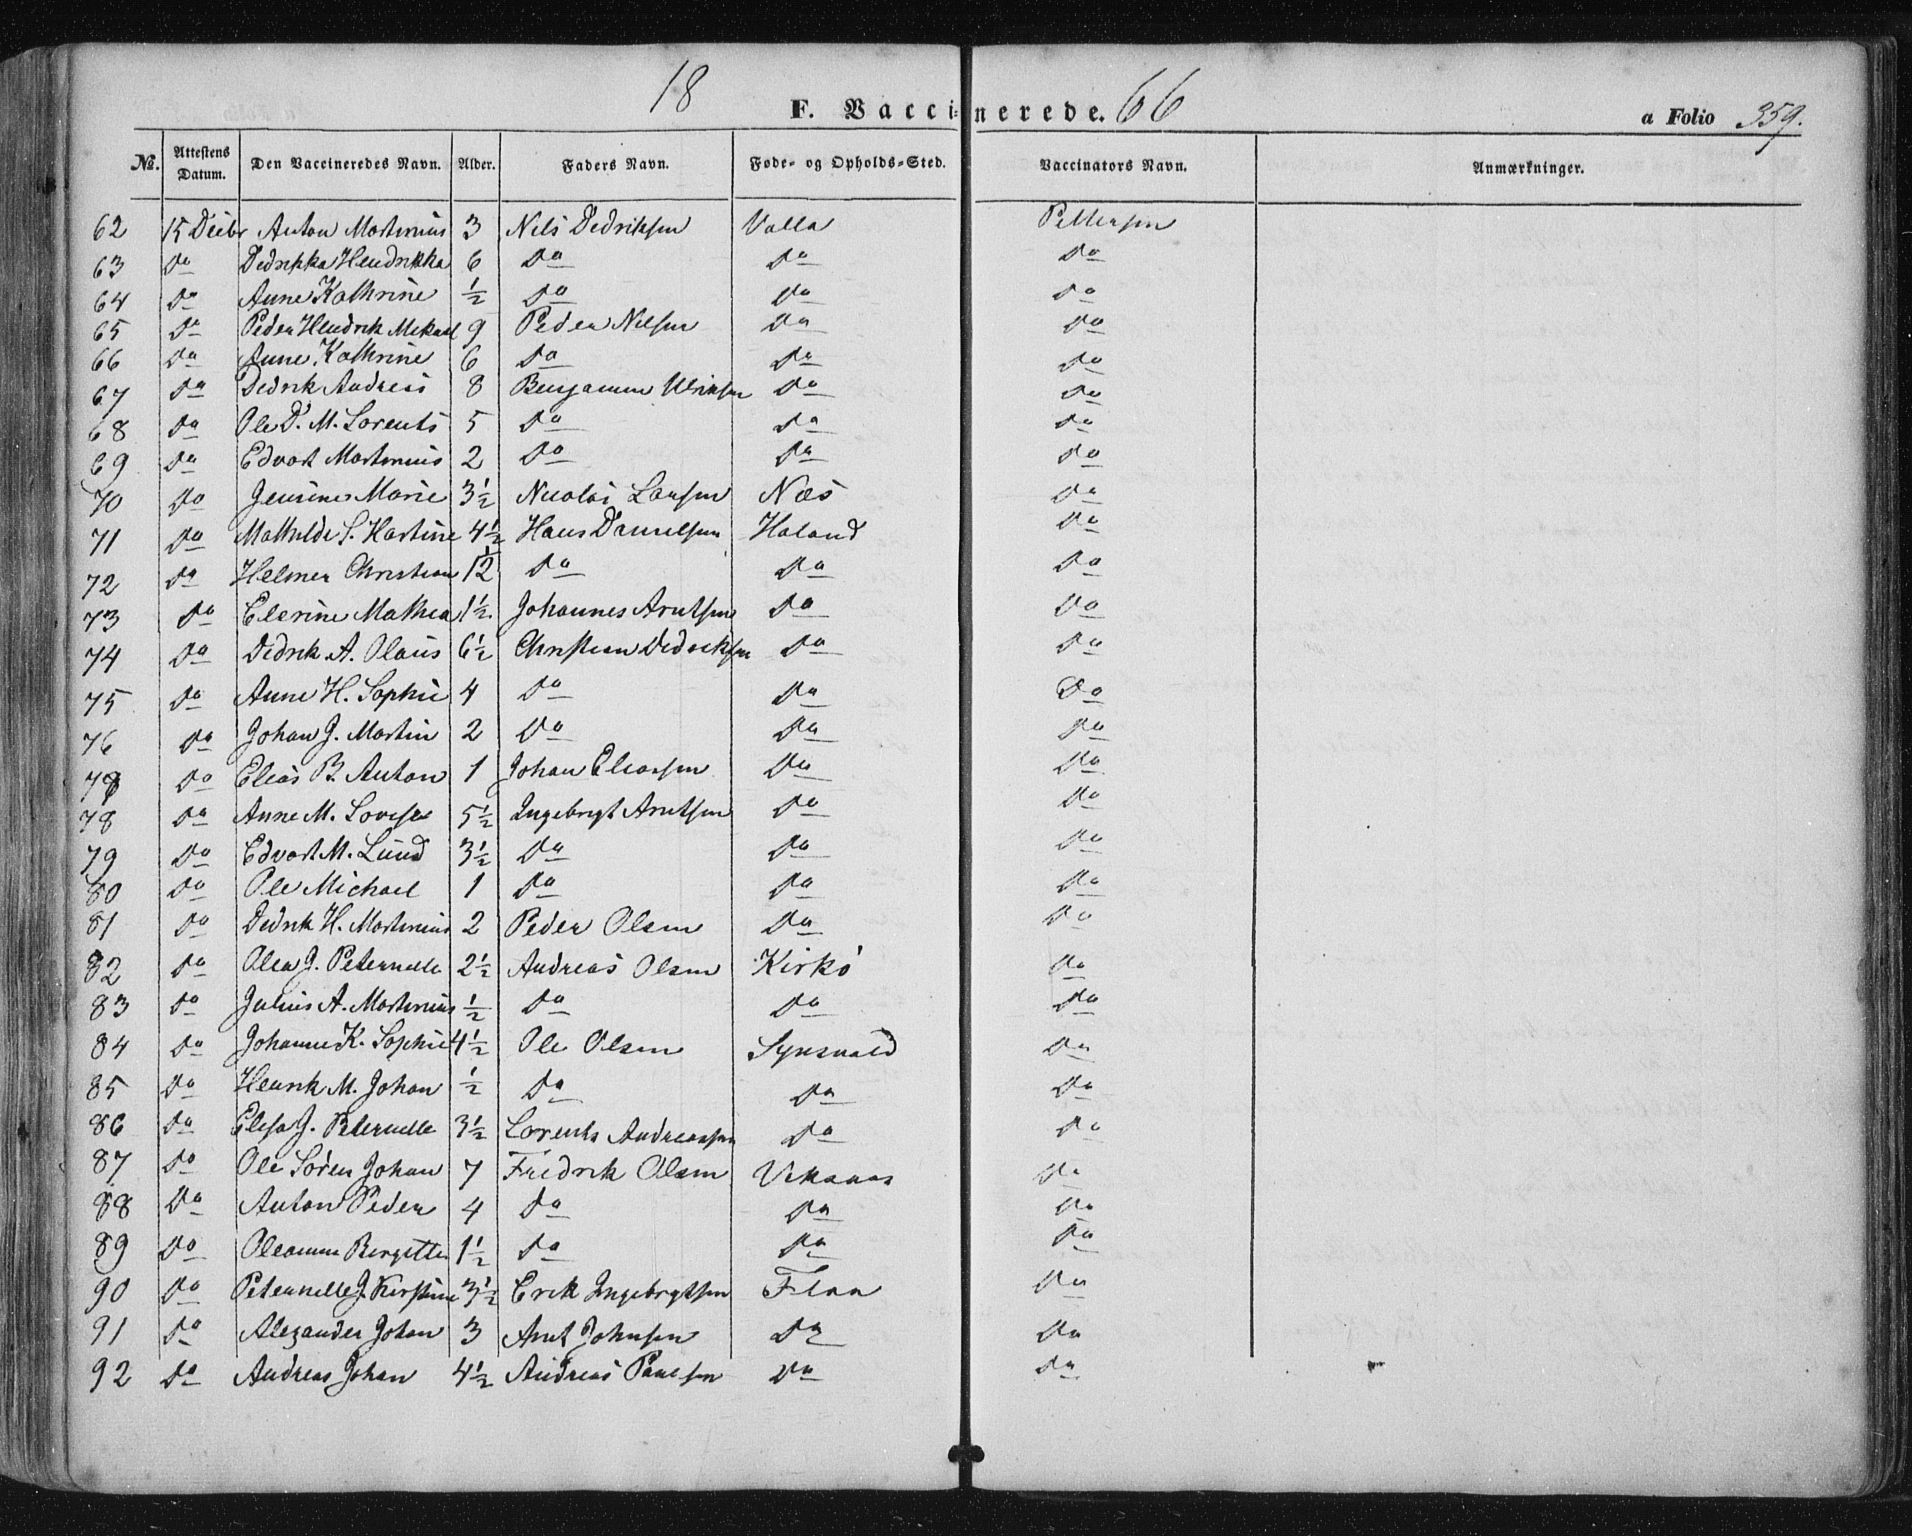 18 F. Vaccinerede. 66 a Folio 359.
№. Attestens Datum. Den Vaccineredes Navn. Alder. Faders Navn. Føde- og Opholds-Sted. Vaccinators Navn. Anmærkninger.
62 15 Decbr Anton Martinius 3 Nils Dedriksen Valla Pettersen
63 Do Dedrikka Hendrikka 6 Do Do Do
64 Do Anne Kathrine ½ Do Do Do
65 Do Peder Hendrik Mekael 9 Peder Nilsen Do Do
66 Do Anne Kathrine 6 Do Do Do
67 Do Dedrik Andreas 8 Benjamin Ulriksen Do Do
68 Do Ole D. M. Lorents 5 Do Do Do
69 Do Edvart Martinius 2 Do Do Do
70 Do Jensine Marie 3½ Nicolai Larsen Næs Do
71 Do Mathilde S. Hartine 4½ Hans Danielsen Haland Do
72 Do Helmer Christian 12 Do Do Do
73 Do Elerine Mathea 1½ Johannes Arntsen Do Do
74 Do Dedrik A. Olaus 6½ Christian Dedriksen Do Do
75 Do Anne H. Sophie 4 Do Do Do
76 Do Johan J. Martin 2 Do Do Do
77 Do Elias B. Anton 1 Johan Eliassen Do Do
78 Do Anne M. Lovise 5½ Ingebrigt Arntsen Do Do
79 Do Edvart M. Lund 3½ Do Do Do
80 Do Ole Michael 1 Do Do Do
81 Do Dedrik H. Martinius 2 Peder Olsen Do Do
82 Do Olea J. Peternelle 2½ Andreas Olsen Kirkö Do
83 Do Julius A. Martinius ½ Do Do Do
84 Do Johanne K. Sophie 4½ Ole Olsen Synsvald Do
85 Do Henrik M. Johan ½ Do Do Do
86 Do Elisa J. Peternelle 3½ Lorents Andreassen Do Do
87 Do Ole Sören Johan 7 Fredrik Olsen Do
88 Do Anton Peder 4 Do Do Do
89 Do Oleanne Bergitte 1½ Do Do Do
90 Do Peternelle J. Kirstine 3½ Erik Ingebrigtsen Flaa Do
91 Do Alexander Johan 3 Arnt Johnsen Do Do
92 Do Andreas Johan 4½ Andreas Paulsen Do Do